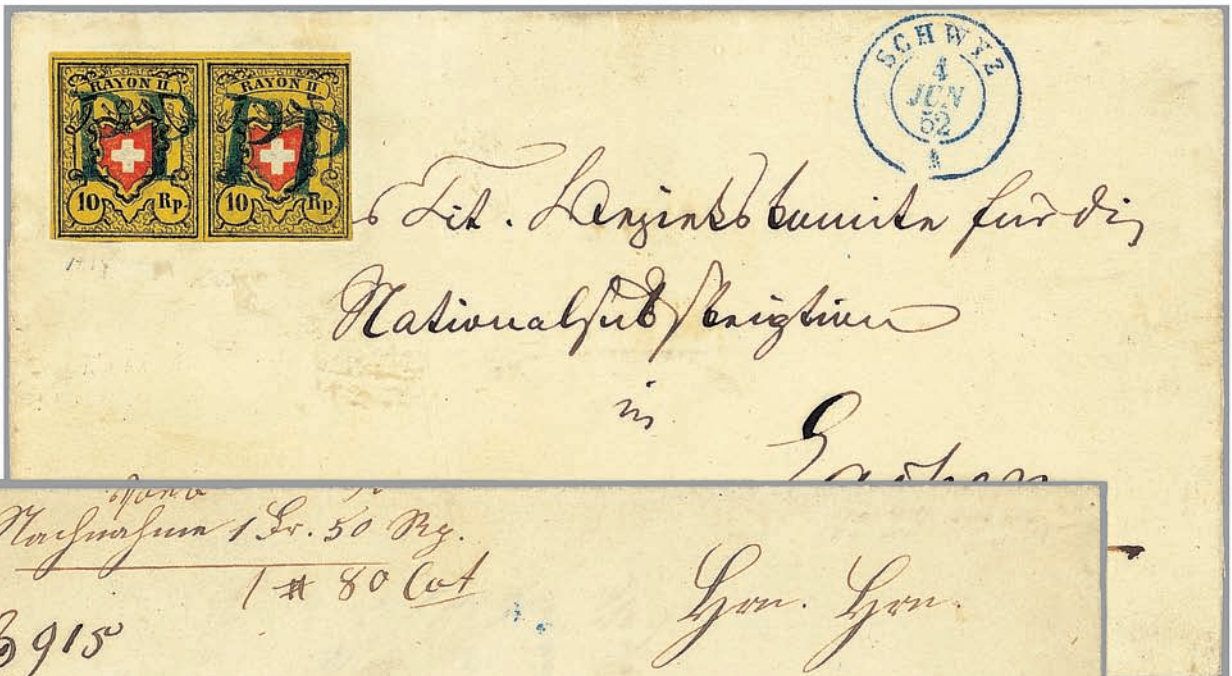 RAYON II. RAYON II
PP PP
10 Rp. 10 Rp.
SCHWYZ
4
JUN
52
Tit. Bezirkskomite für die
Nationalsubskription
in
Nachnahme 1 Fr. 50 Rp.
1 # 80 Cot
Hrn. Hrn.
915